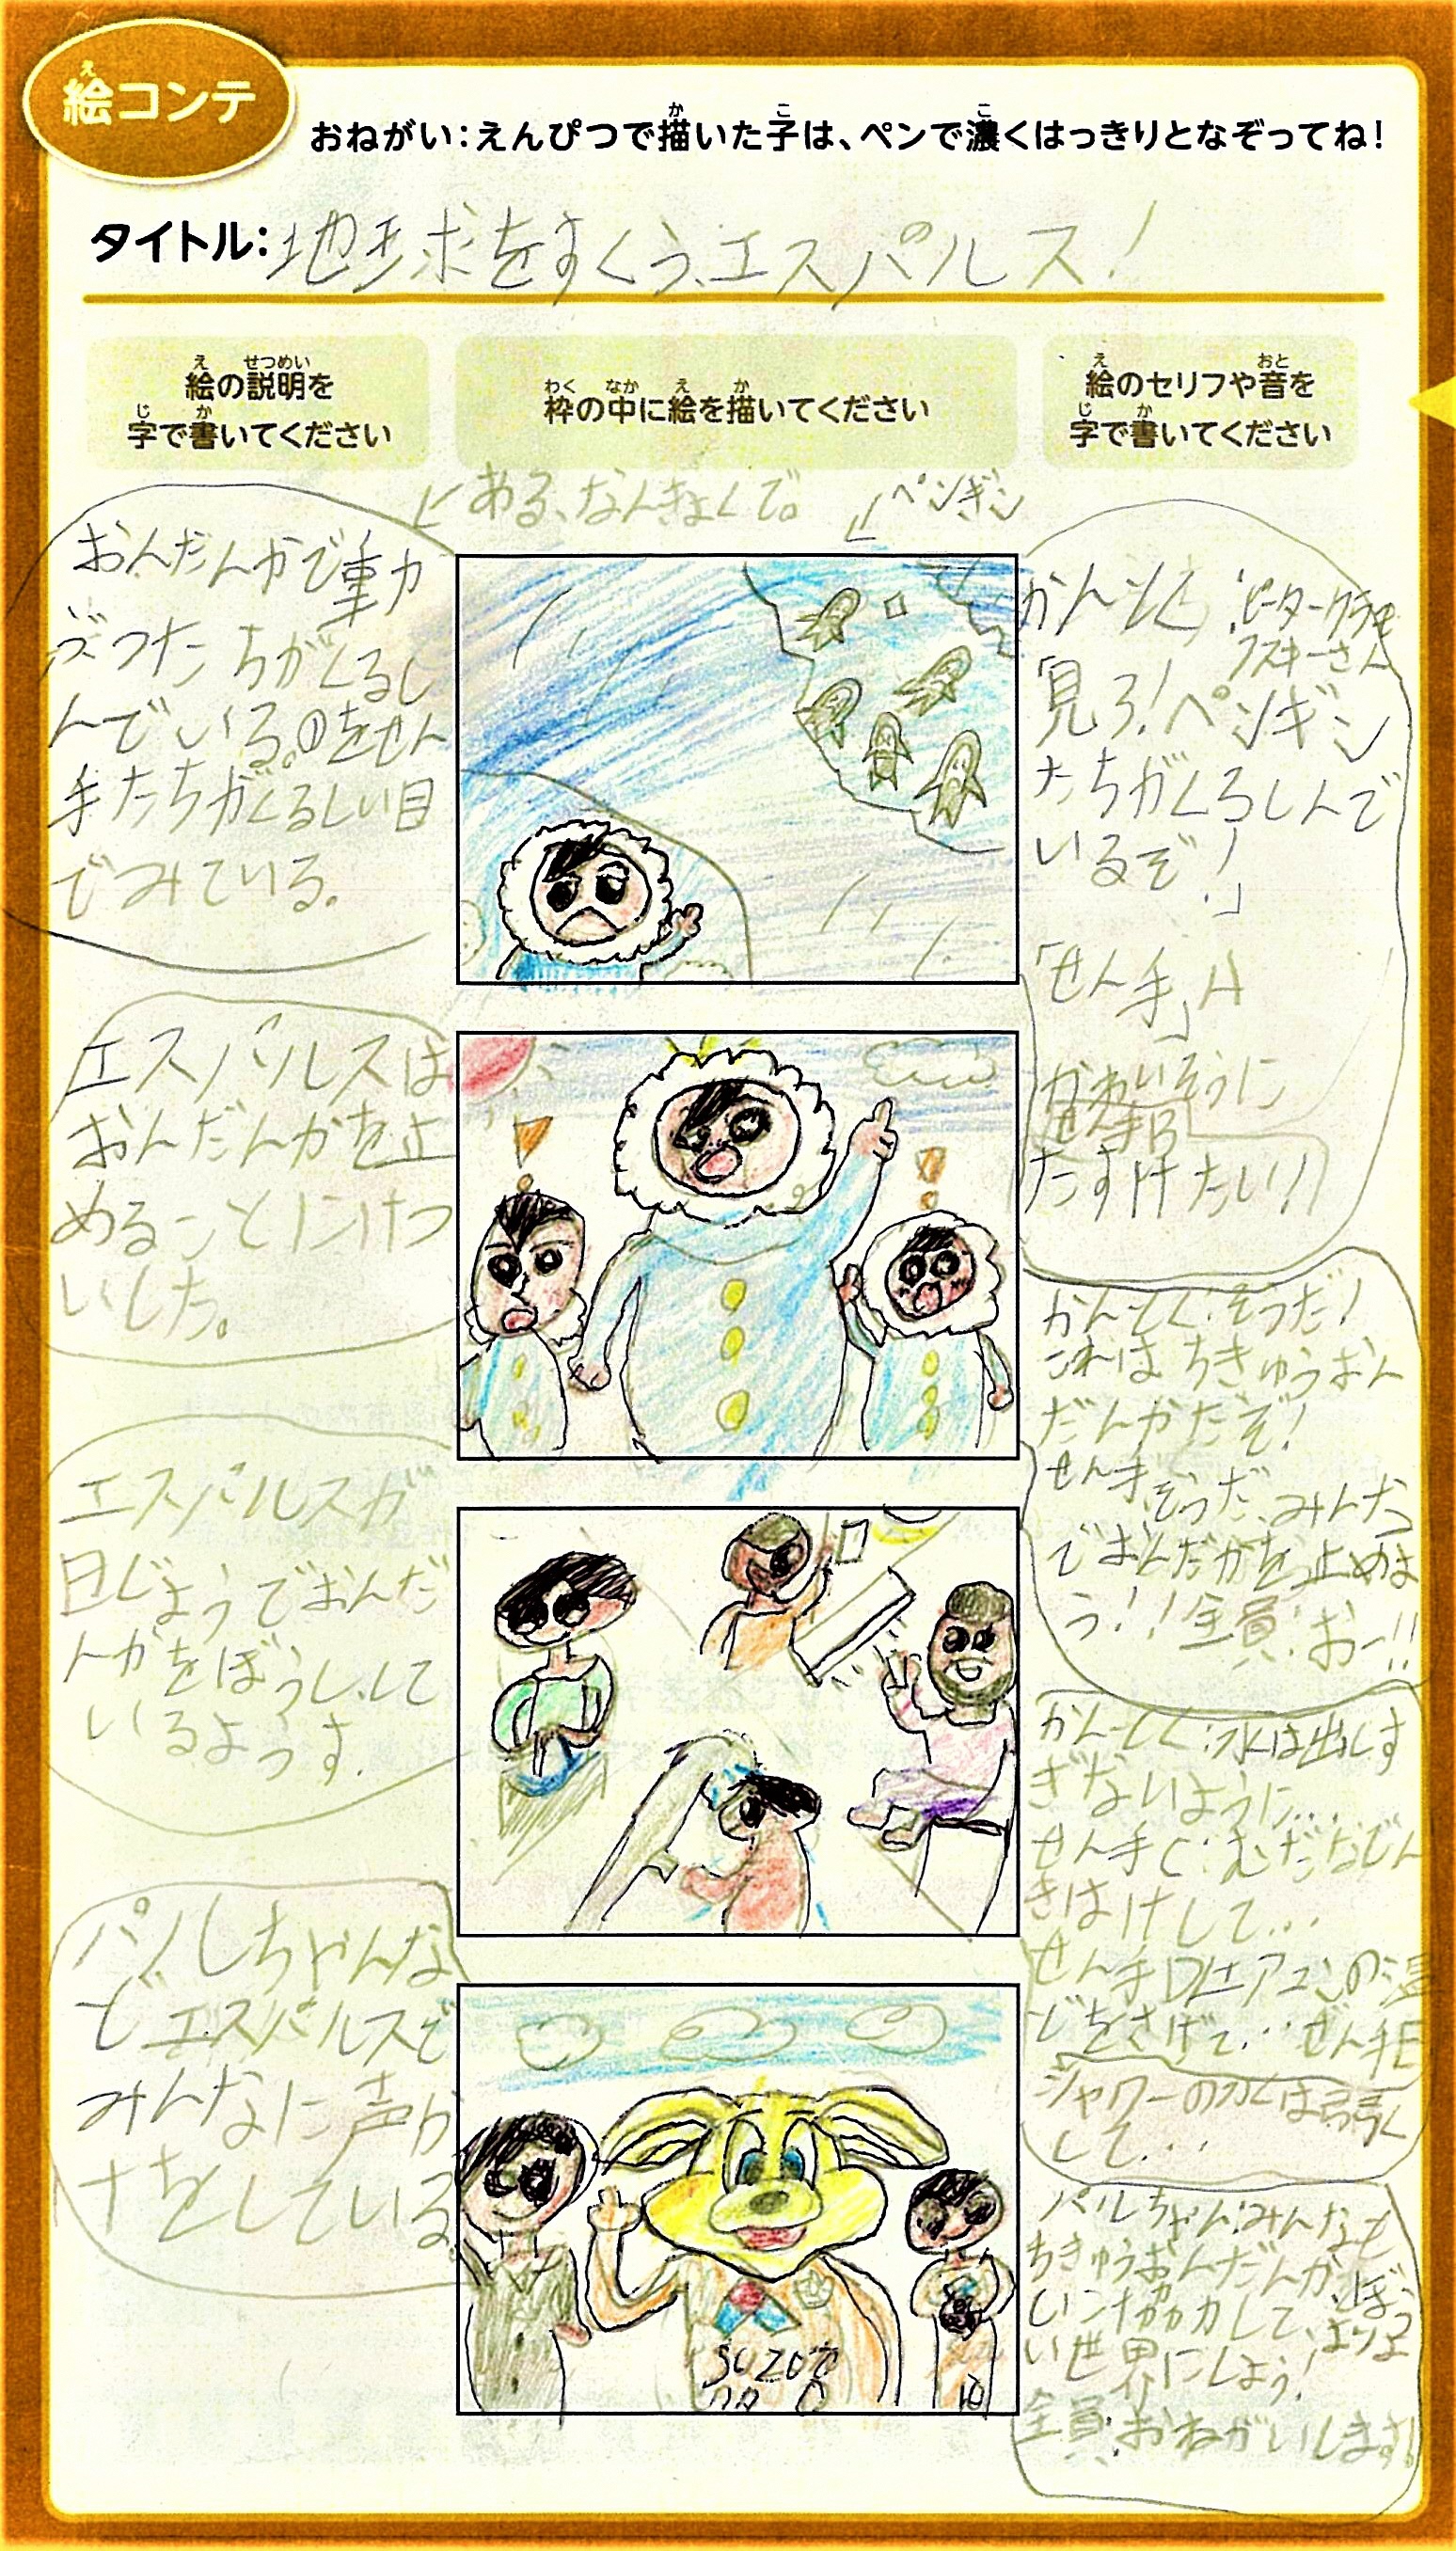 絵コンテ
おねがい:えんぴつで描いた子は、ペンで濃くはっきりとなぞってね!
タイトル:地球をすくう、エスパルス!
絵の説明を
字で書いてください
枠の中に絵を描いてください
絵のセリフや音を
字で書いてください
ある、なんきょくで。
ペンギン
おんだんかで動
ぶつたちがくるし
んでいる。のをせん
手たちがくるしい目
でみている。
かんとく:ピータークラモ
フスキーさん
「見ろ!ペンギン
たちがくるしんで
いるぞ!」
「せん手」A
かわいそうに
せん手B
たすけたい!!
エスパルスは
おんだんかを止
めることにけつ
いした。
かんとく:そうだ!
これはちきゅうおん
だんかだぞ!
せん手:そうだ、みんな
でおんだかを止めま
う!!全員:おー!!
エスパルスが
日じょうでおんだ
んかをぼうし、して
いるようす.
かんとく:水は出しす
ぎないように...
せん手C:むだなでん
きはけして...
せん手D:エアコンの温
どをさげて...せん手E
シャワーの力は弱く
して...
パルちゃんな
どエスパルスで
みんなに声か
けをしている。
パルちゃん:みんなも
ちきゅうおんだんか、ぼう
しに協力して、よりよ
い世界にしよう!
全員:おねがいします!
SUZUYO
10